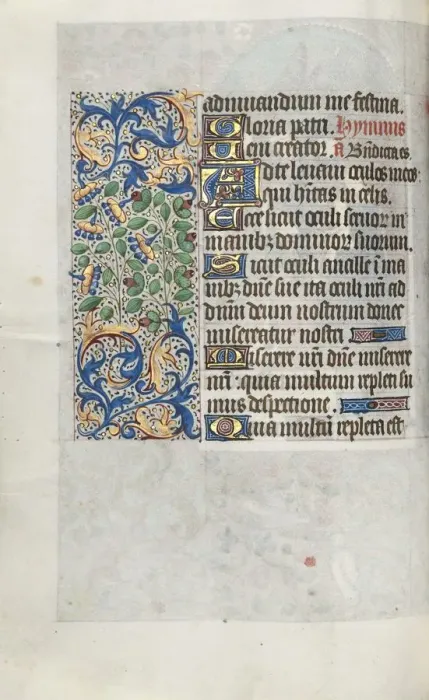 adiuuandum me festina.
Gloria patri. Hymnus
Veni creator. a Bñdicta es.
Ad te leuaui oculos meos:
qui hītas in celis.
Ecce sicut oculi seruor in
manibz dominor suorum.
Sicut oculi ancille i ma
nibz dñe sue ita oculi nrī ad
dnm deum nostrum donec
misereatur nostri
Miserere nrī dñe miserere
nrī: quia multum repleti su
mus despectione.
Quia multū repleta est